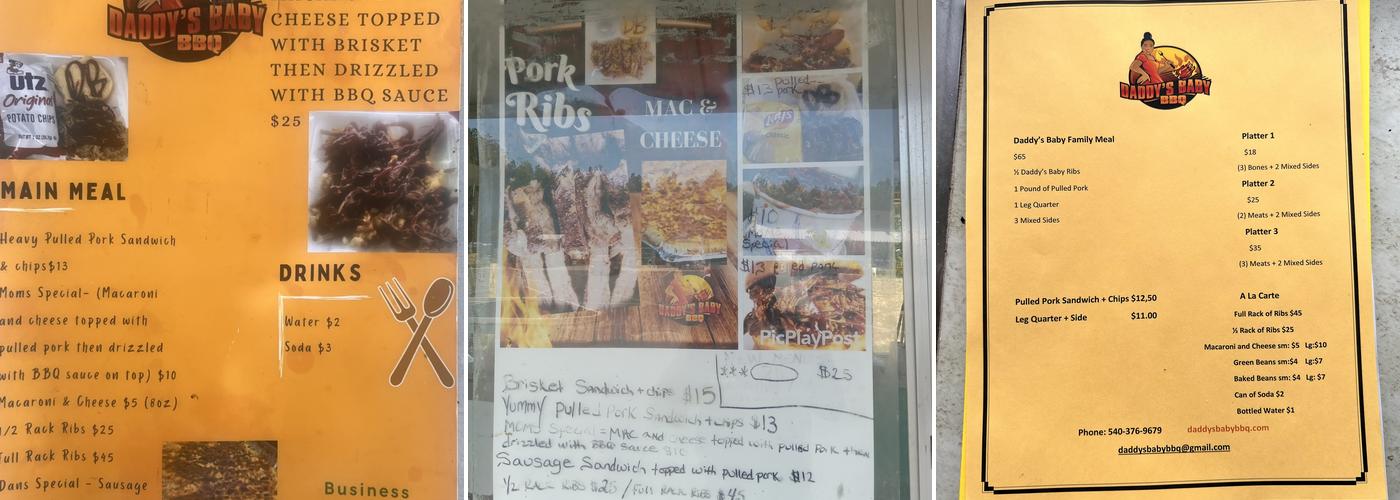 DADDY'S BABY
BBQ
CHEESE TOPPED
WITH BRISKET
THEN DRIZZLED
WITH BBQ SAUCE
$25
utz
Original
POTATO CHIPS
MAIN MEAL
Heavy Pulled Pork Sandwich
& chips$13
Moms Special- (Macaroni
and cheese topped with
pulled pork then drizzled
with BBQ sauce on top) $10
Macaroni & Cheese $5 (8oz)
1/2 Rack Ribs $25
Full Rack Ribs $45
Dans Special - Sausage
DRINKS
Water $2
Soda $3
Business
Pork
Ribs
MAC &
CHEESE
$13 pulled
pork
Lay's
$10
Special
$13 pulled pork
DADDY'S BABY
BBQ
PicPlayPost
*** $25
Brisket Sandwich + chips $15
Yummy Pulled Pork Sandwich + chips $13
MOMS Special = MAC and cheese topped with pulled pork then
drizzled with BBQ sauce $10
Sausage Sandwich topped with pulled pork $12
1/2 RACK RIBS $25 / FULL RACK RIBS $45
DADDY'S BABY
BBQ
Daddy's Baby Family Meal
$65
½ Daddy's Baby Ribs
1 Pound of Pulled Pork
1 Leg Quarter
3 Mixed Sides
Pulled Pork Sandwich + Chips $12,50
Leg Quarter + Side $11.00
Platter 1
$18
(3) Bones + 2 Mixed Sides
Platter 2
$25
(2) Meats + 2 Mixed Sides
Platter 3
$35
(3) Meats + 2 Mixed Sides
A La Carte
Full Rack of Ribs $45
½ Rack of Ribs $25
Macaroni and Cheese sm: $5 Lg:$10
Green Beans sm:$4 Lg:$7
Baked Beans sm: $4 Lg: $7
Can of Soda $2
Bottled Water $1
Phone: 540-376-9679 daddysbabybbq.com
daddysbabybbq@gmail.com